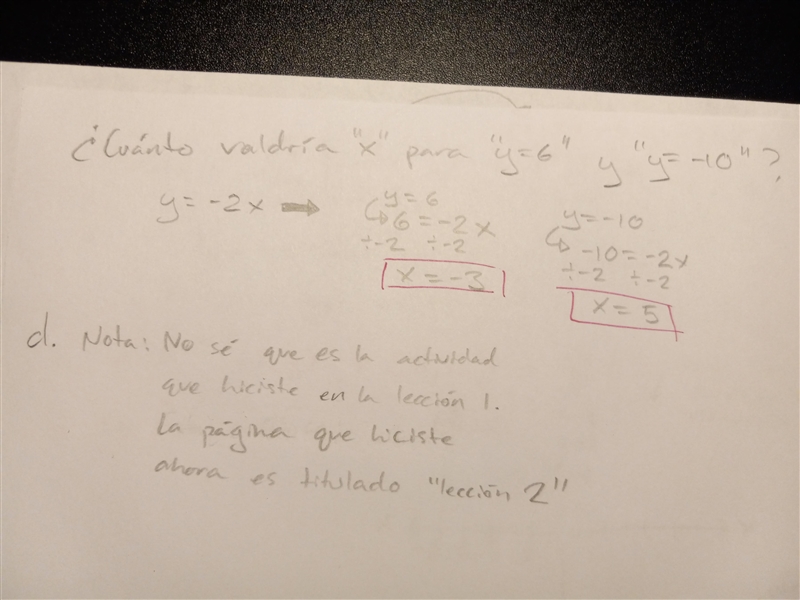 ¿Cuánto valdría "x" para "y=6" y "y=-10"?
y=-2x → y=6
↳ 6=-2x
÷-2 ÷-2
x=-3
y=-10
↳ -10=-2x
÷-2 ÷-2
x=5
d. Nota: No sé que es la actividad
que hiciste en la lección 1.
La página que hiciste
ahora es titulado "lección 2"